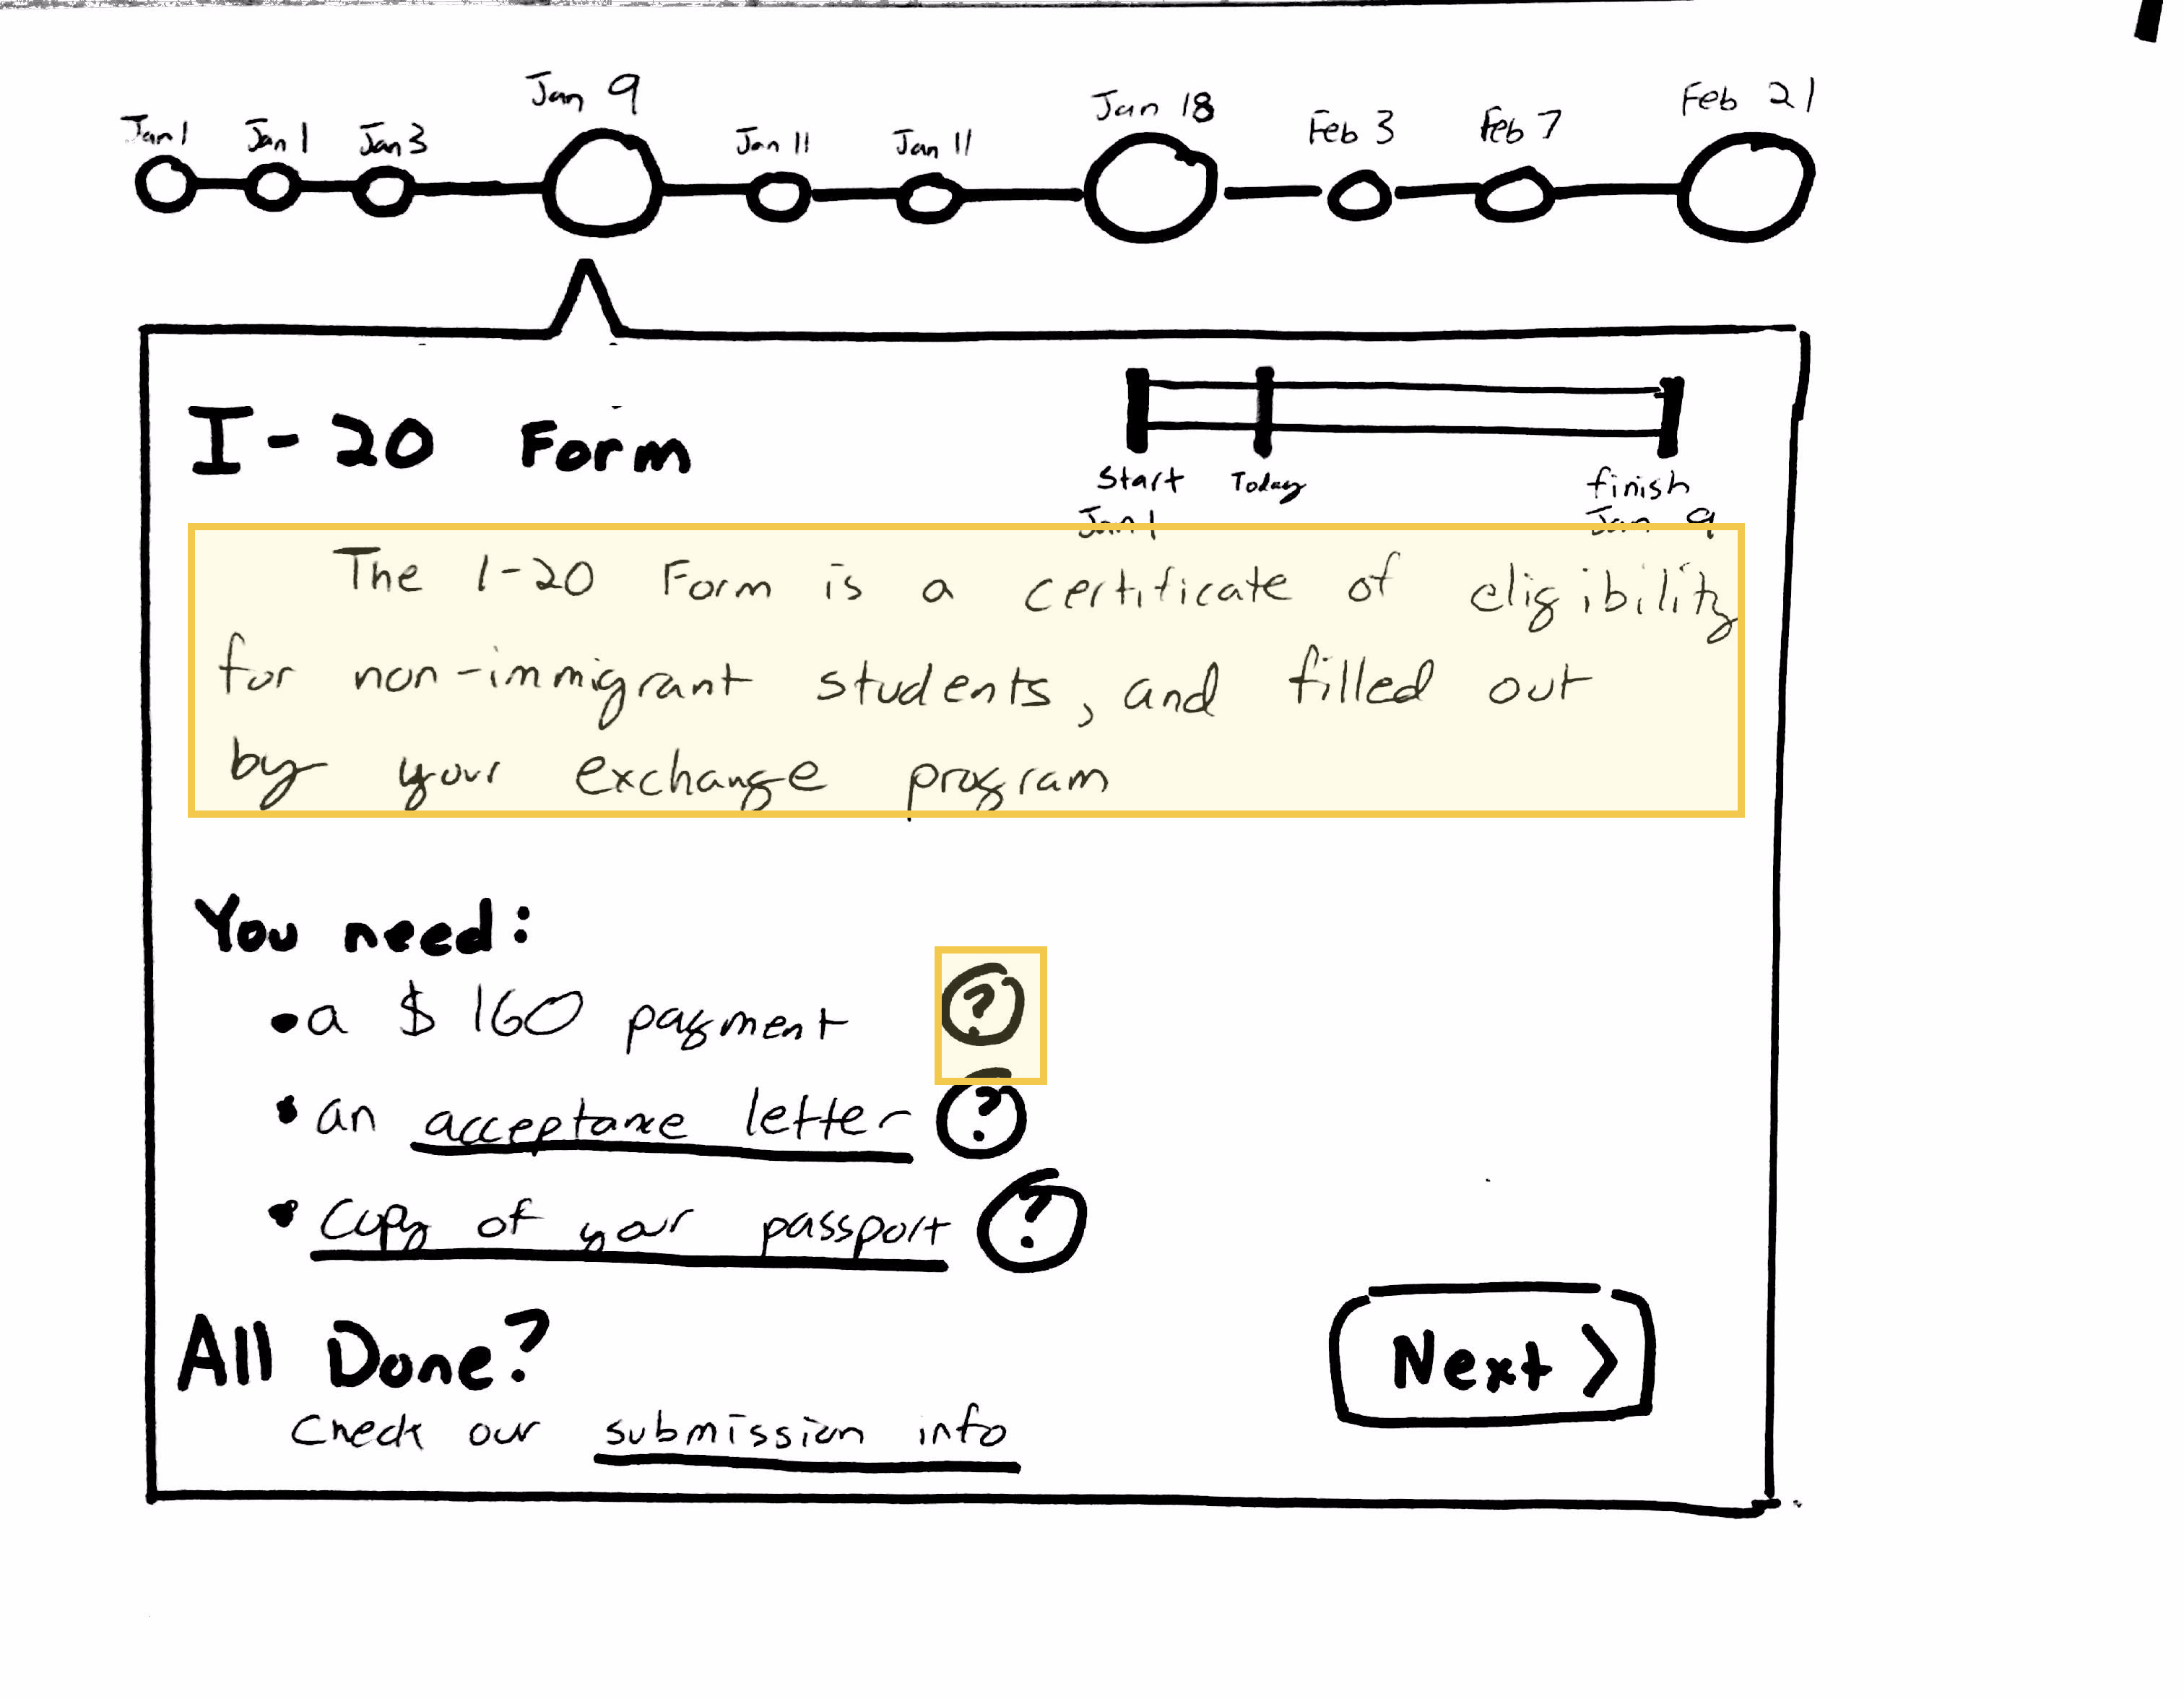 Jan 1 Jan 1 Jan 3 Jan 9 Jan 11 Jan 11 Jan 18 Feb 3 Feb 7 Feb 21
I-20 Form
Start Today finish
Jan 1 Jan 9
The I-20 Form is a certificate of eligibility
for non-immigrant students, and filled out
by your exchange program
You need:
• a $160 payment ?
• an acceptance letter ?
• Copy of your passport ?
All Done?
Next >
Check our submission info